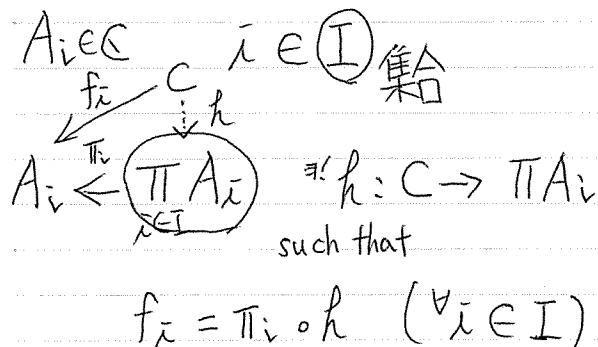 Ai∈C i∈I 集合
fi C
h
πi
Ai ← ΠAi ∃!h:C→ΠAi
i∈I
such that
fi=πi∘h (∀i∈I)